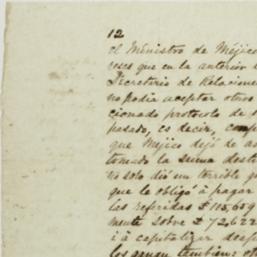 12
el Ministro de Méjico
eses que en la anterior
Secretario de Relacione
no podia aceptar otro
cionado protocolo de
pasado, es decir, comp
que Méjico dejó de
tomado la suma dest
no solo dió un terrible
que le obligó a pagar
las referidas £ 115,609
mente sobre £ 72,622
i á capitalizar desp
los